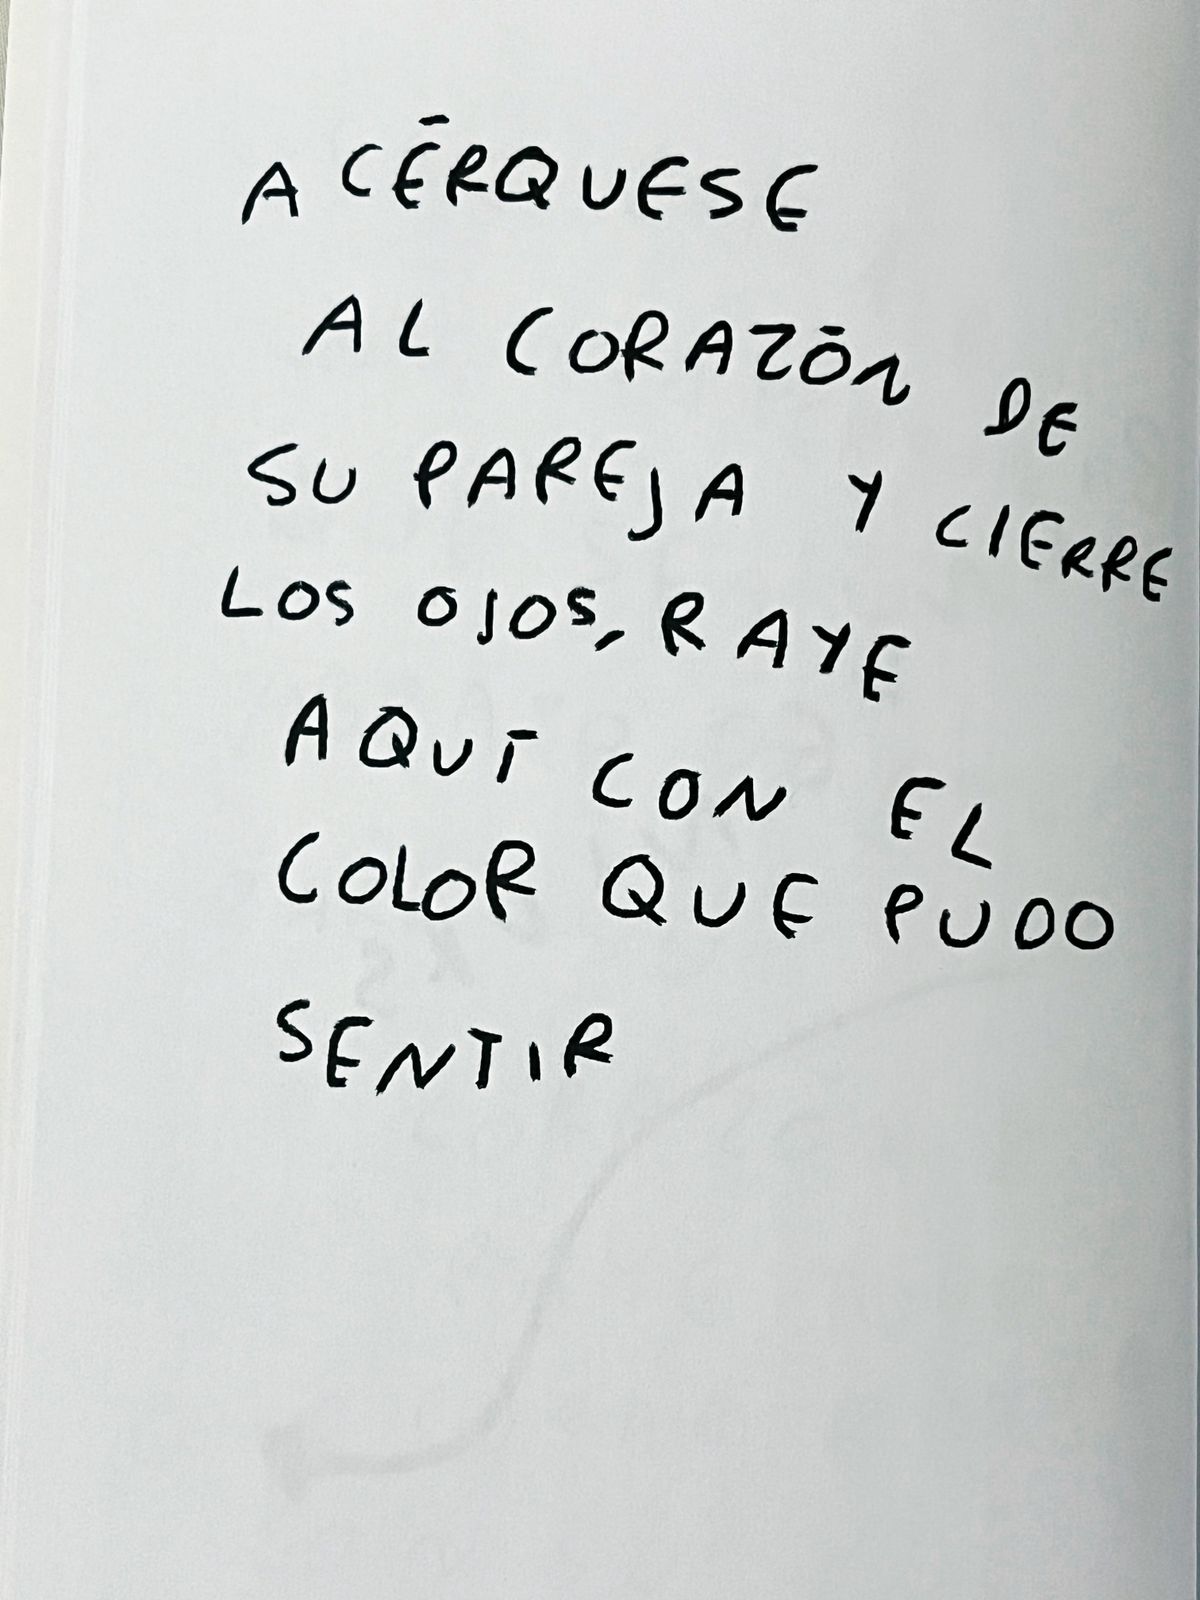 ACÉRQUESE
AL CORAZÓN DE
SU PAREJA Y CIERRE
LOS OJOS, RAYE
AQUÍ CON EL
COLOR QUE PUDO
SENTIR